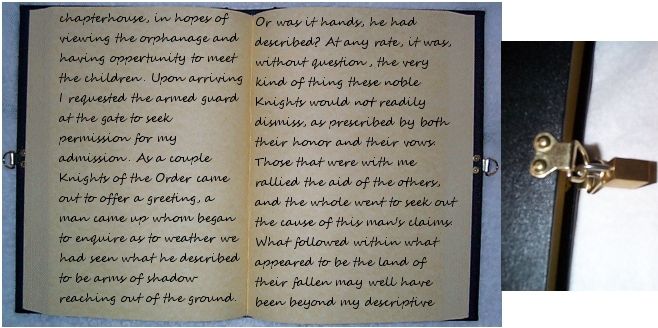 chapterhouse, in hopes of
viewing the orphanage and
having opportunity to meet
the children. Upon arriving
I requested the armed guard
at the gate to seek
permission for my
admission. As a couple
Knights of the Order came
out to offer a greeting, a
man came up whom began
to enquire as to weather we
had seen what he described
to be arms of shadow
reaching out of the ground.
Or was it hands, he had
described? At any rate, it was,
without question, the very
kind of thing these noble
Knights would not readily
dismiss, as prescribed by both
their honor and their vows.
Those that were with me
rallied the aid of the others,
and the whole went to seek out
the cause of this man's claims.
What followed within what
appeared to be the land of
their fallen may well have
been beyond my descriptive